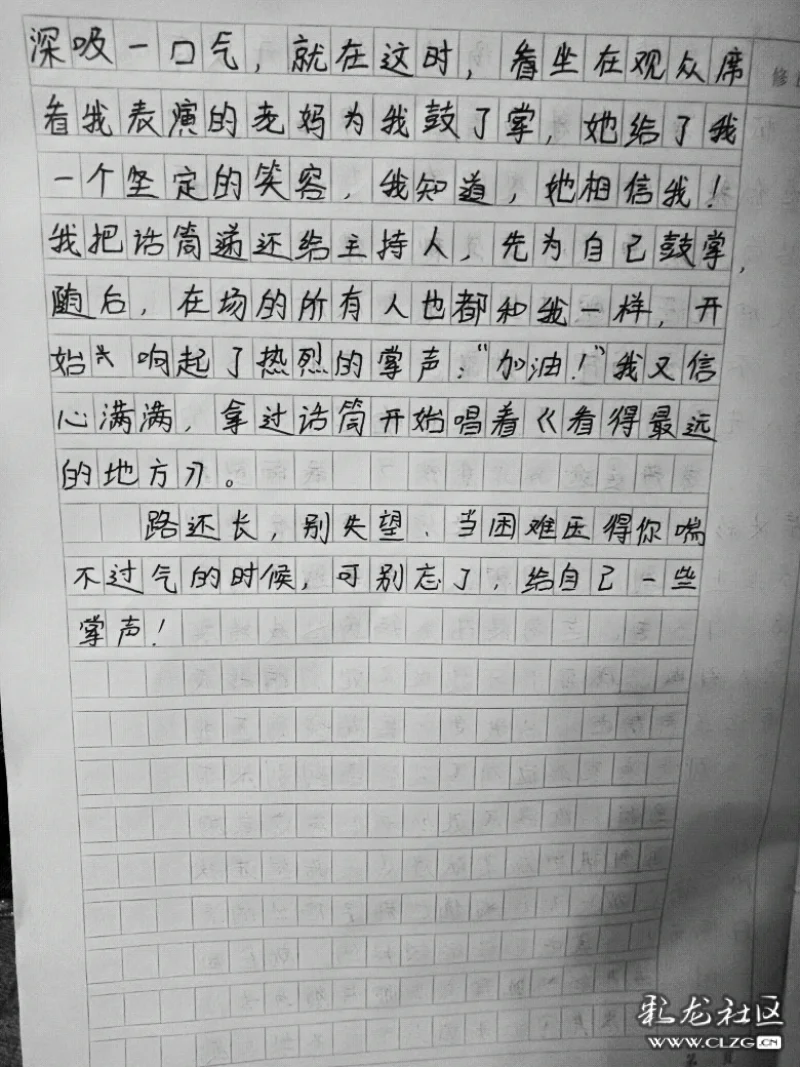 深吸一口气，就在这时，看坐在观众席
看我表演的老妈为我鼓了掌，她给了我
一个坚定的笑容，我知道，她相信我！
我把话筒递还给主持人，先为自己鼓掌，
随后，在场的所有人也都和我一样，开
始 响起了热烈的掌声：“加油！”我又信
心满满，拿过话筒开始唱着《看得最远
的地方》。
路还长，别失望、当困难压得你喘
不过气的时候，可别忘了，给自己一些
掌声！
修
彩龙社区
WWW.CLZG.CN
第 页